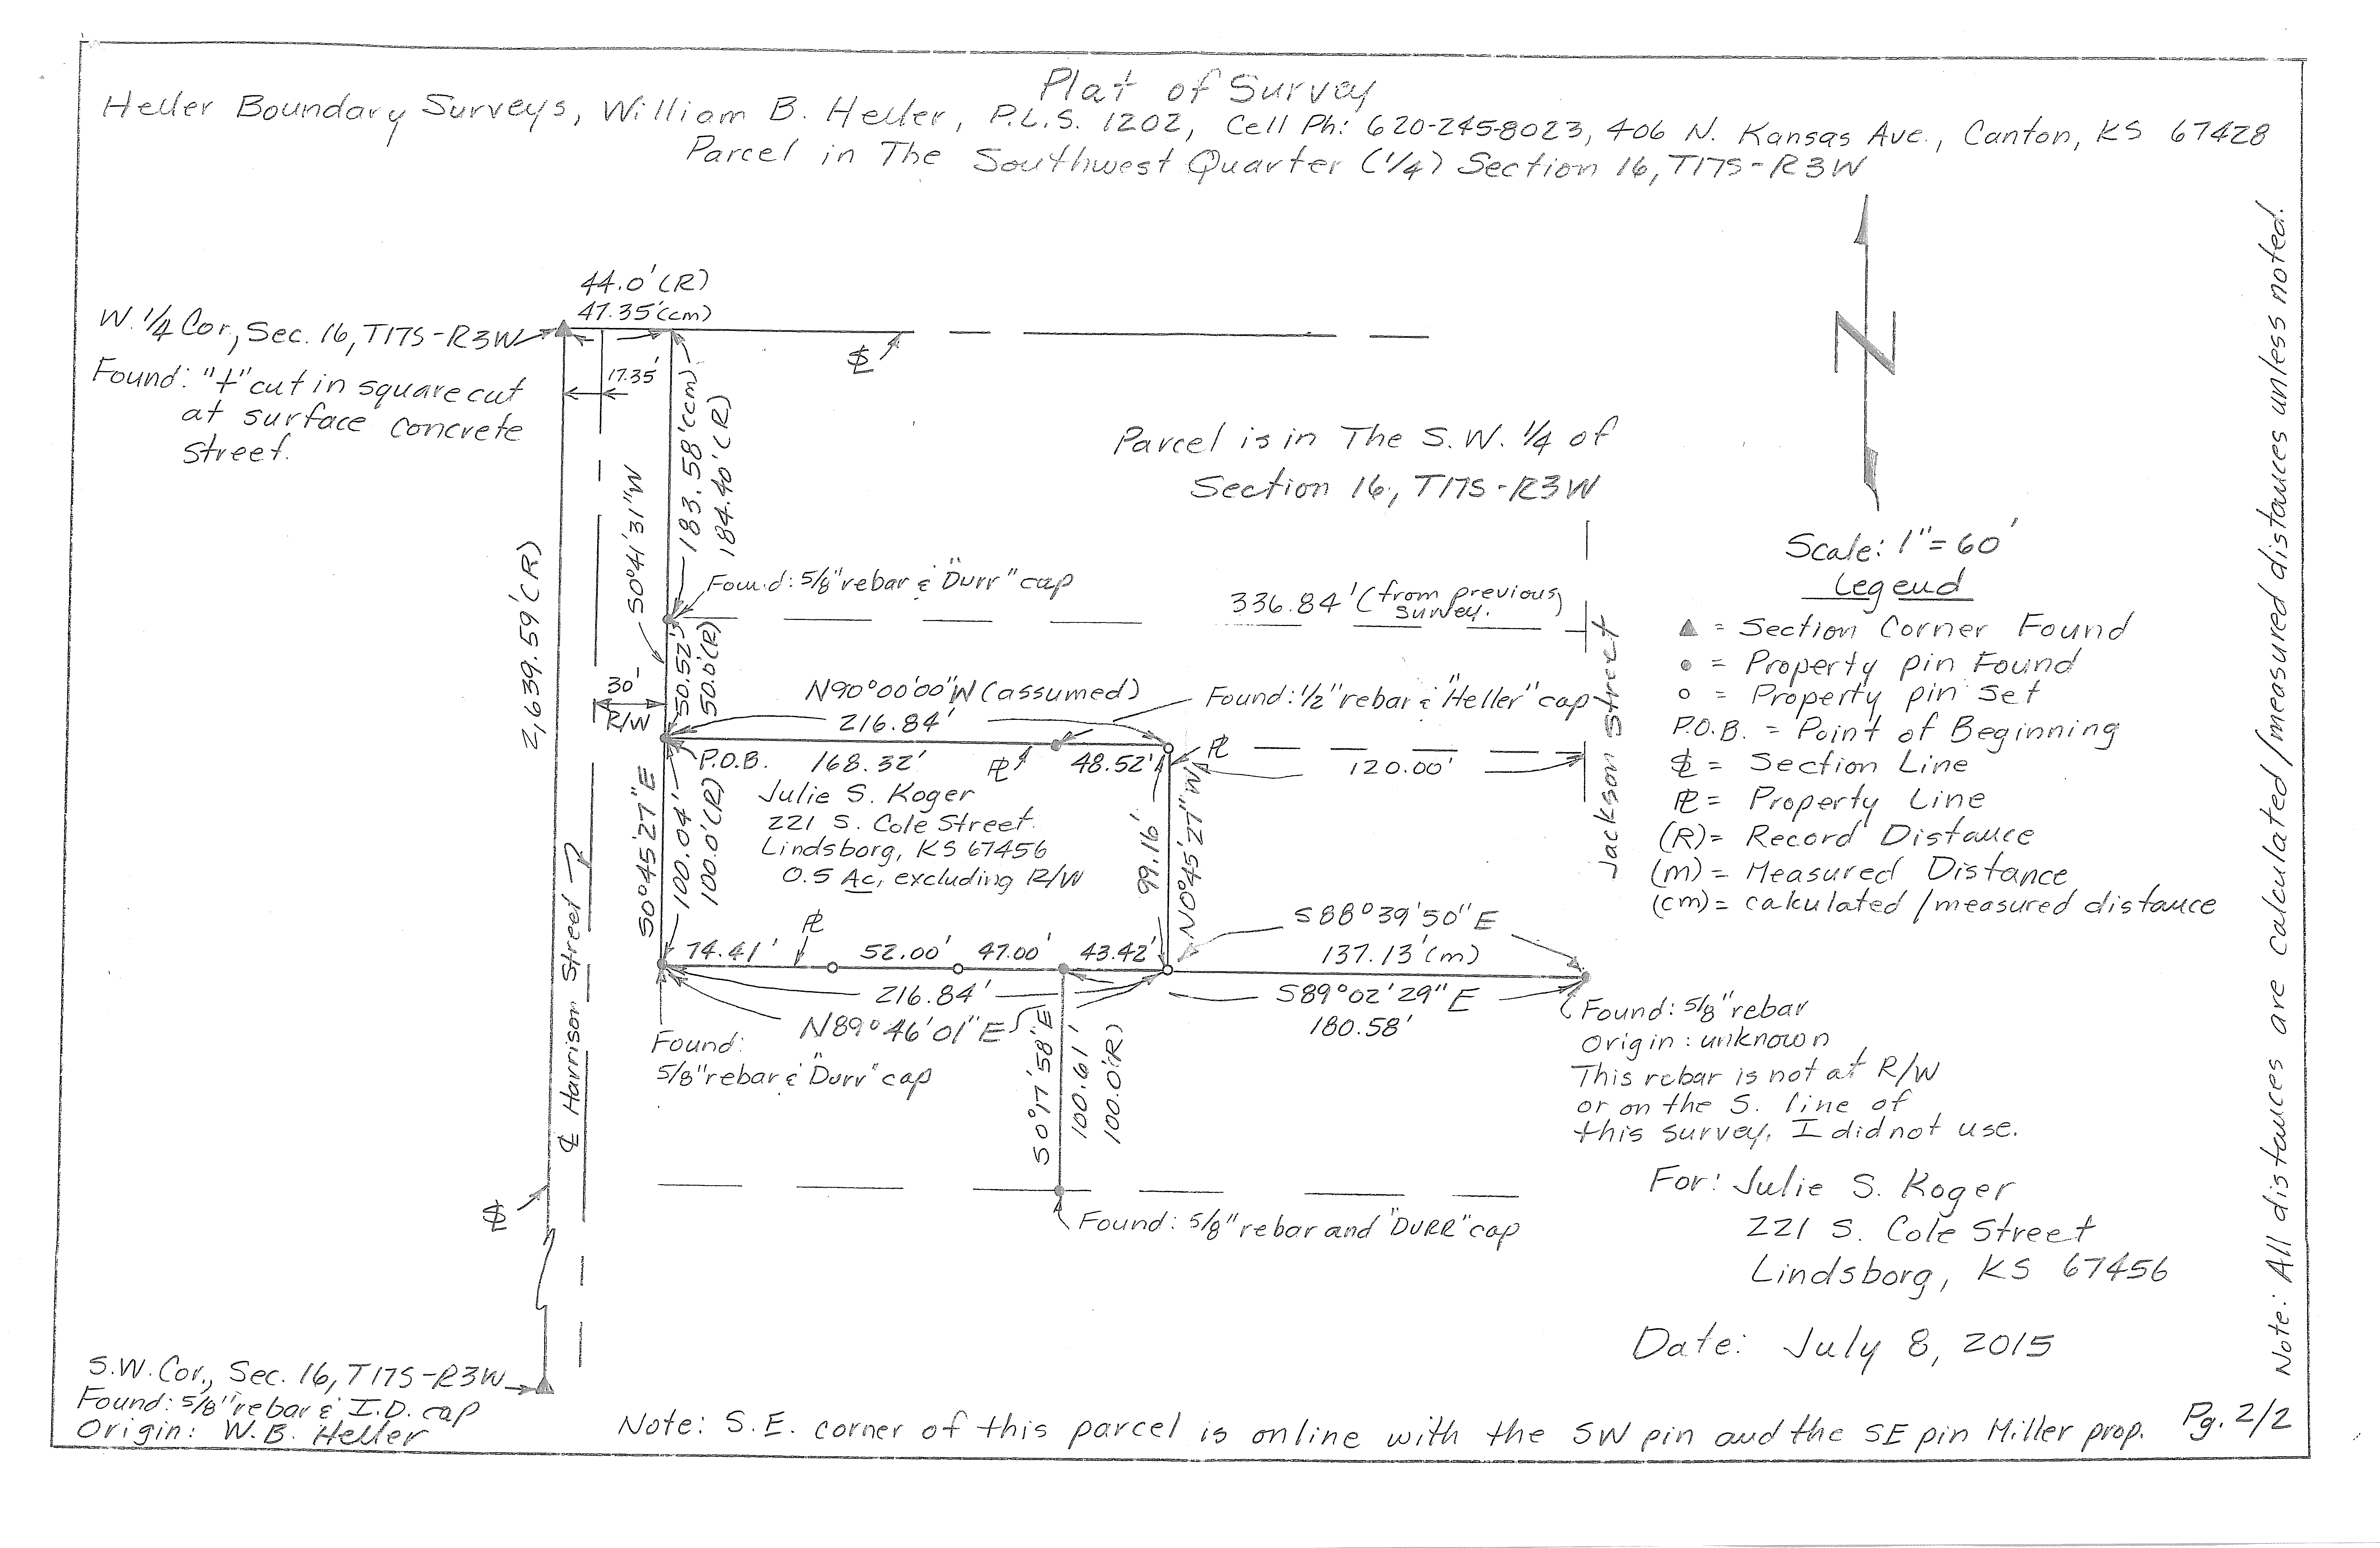 Plat of Survey
Heller Boundary Surveys, William B. Heller, P.L.S. 1202, Cell Ph: 620-245-8023, 406 N. Kansas Ave., Canton, KS 67428
Parcel in The Southwest Quarter (1/4) Section 16, T17S-R3W
44.0'(R)
47.35'(cm)
W. 1/4 Cor., Sec. 16, T17S-R3W
Found: "+" cut in square cut
at surface concrete
street.
17.35'
183.58'(cm)
184.40'(R)
S0°41'31"W
2,639.59'(R)
Parcel is in The S.W. 1/4 of
Section 16, T17S-R3W
Found: 5/8" rebar & "Durr" cap
336.84' (from previous
survey.)
50.52'
50.0'(R)
30'
R/W
N90°00'00"W (assumed)
216.84'
Found: 1/2" rebar & "Heller" cap
Jackson Street
P.O.B.
168.32'
PL
48.52'
PL
120.00'
Julie S. Koger
221 S. Cole Street
Lindsborg, KS 67456
0.5 Ac, excluding R/W
S0°45'27"E
100.04'
100.0'(R)
99.16'
N0°45'27"W
PL
74.41'
52.00'
47.00'
43.42'
216.84'
N89°46'01"E
S88°39'50"E
137.13'(m)
S89°02'29"E
180.58'
Found:
5/8" rebar & "Durr" cap
S0°17'58"E
100.61'
100.0'(R)
Found: 5/8" rebar
Origin: unknown
This rebar is not at R/W
or on the S. line of
this survey. I did not use.
Found: 5/8" rebar and "DURR" cap
℄ Harrison Street
SL
SL
S.W. Cor., Sec. 16, T17S-R3W
Found: 5/8" rebar & I.D. cap
Origin: W.B. Heller
N
Scale: 1"=60'
Legend
▲ = Section Corner Found
● = Property pin Found
○ = Property pin set
P.O.B. = Point of Beginning
SL = Section Line
PL = Property Line
(R) = Record Distance
(m) = Measured Distance
(cm) = calculated/measured distance
For: Julie S. Koger
221 S. Cole Street
Lindsborg, KS 67456
Date: July 8, 2015
Note: S.E. corner of this parcel is online with the SW pin and the SE pin Miller prop.
Pg. 2/2
Note: All distances are calculated/measured distances unless noted.